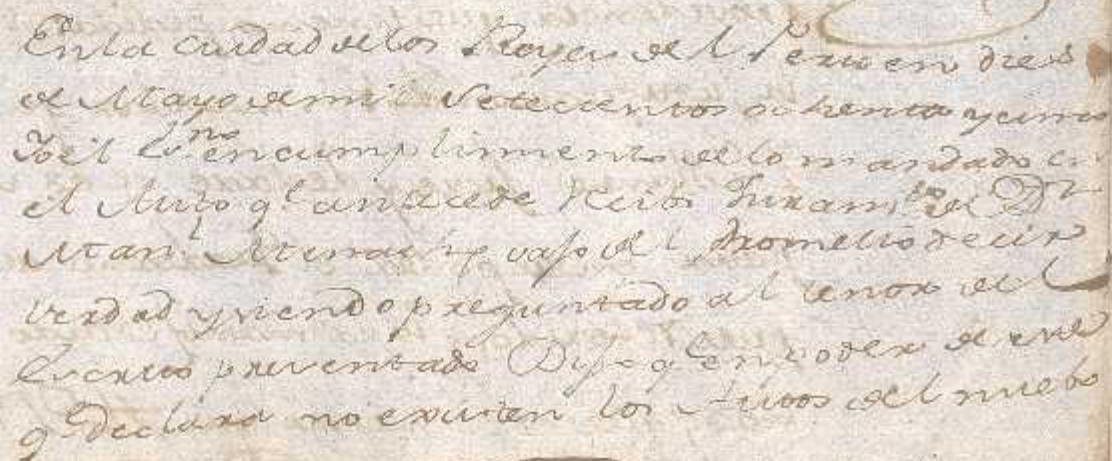 En la ciudad de los Reyes del Peru en dies
de Mayo de mil Setecientos ochenta y cinco
Yo el Esno en cumplimiento de lo mandado en
el Auto qe antecede Recibi Juramto de Dn
Manl Menacho vajo del prometio decir
verdad y siendo preguntado al tenor del
Escrito presentado Dijo qe en poder de este
qe declara no existen los Autos del nuebo